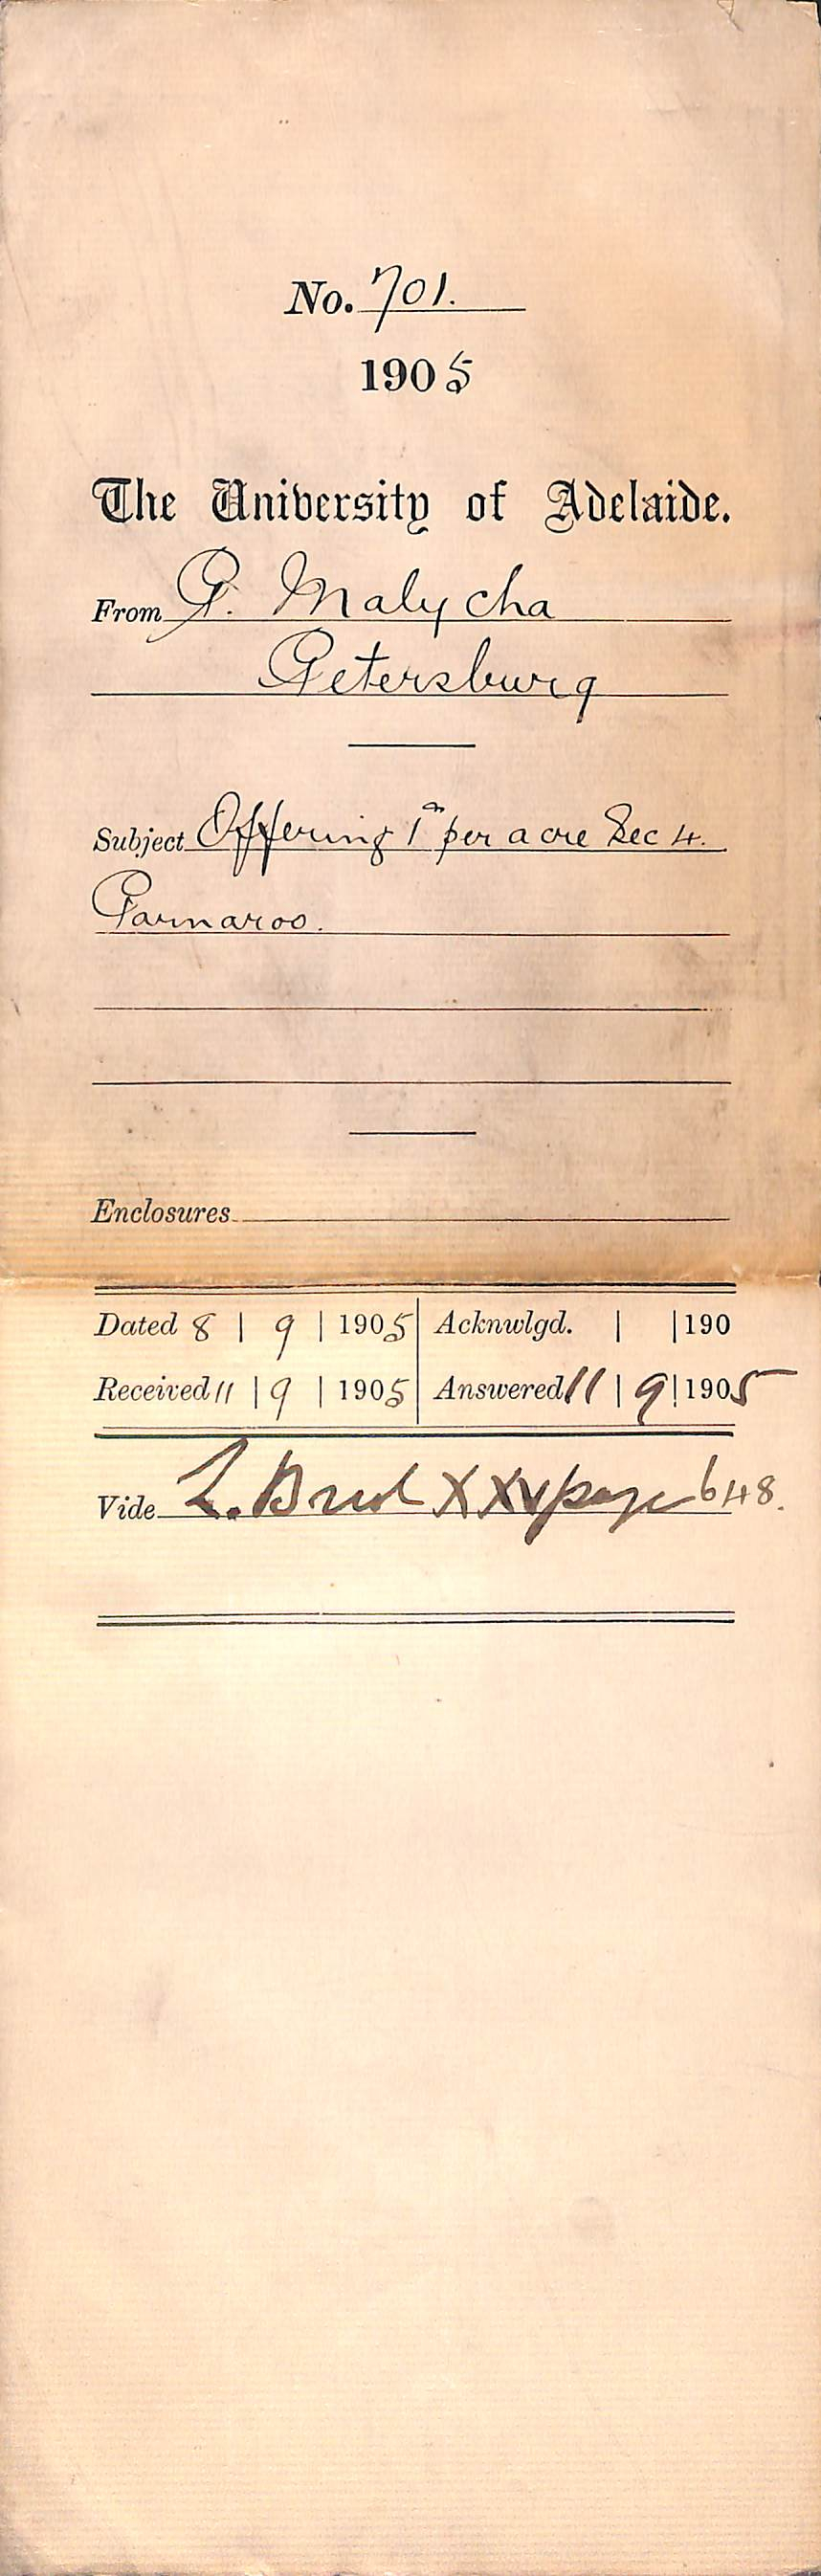 No. 701.
1905
The University of Adelaide.
From P. Malycha
Petersburg
Subject Offering 1/- per acre Sec 4.
Parnaroo.
Enclosures
Dated 8 | 9 | 1905 Acknwlgd. | | 190
Received 11 | 9 | 1905 Answered 11 | 9 | 1905
Vide L. XXV page 648.